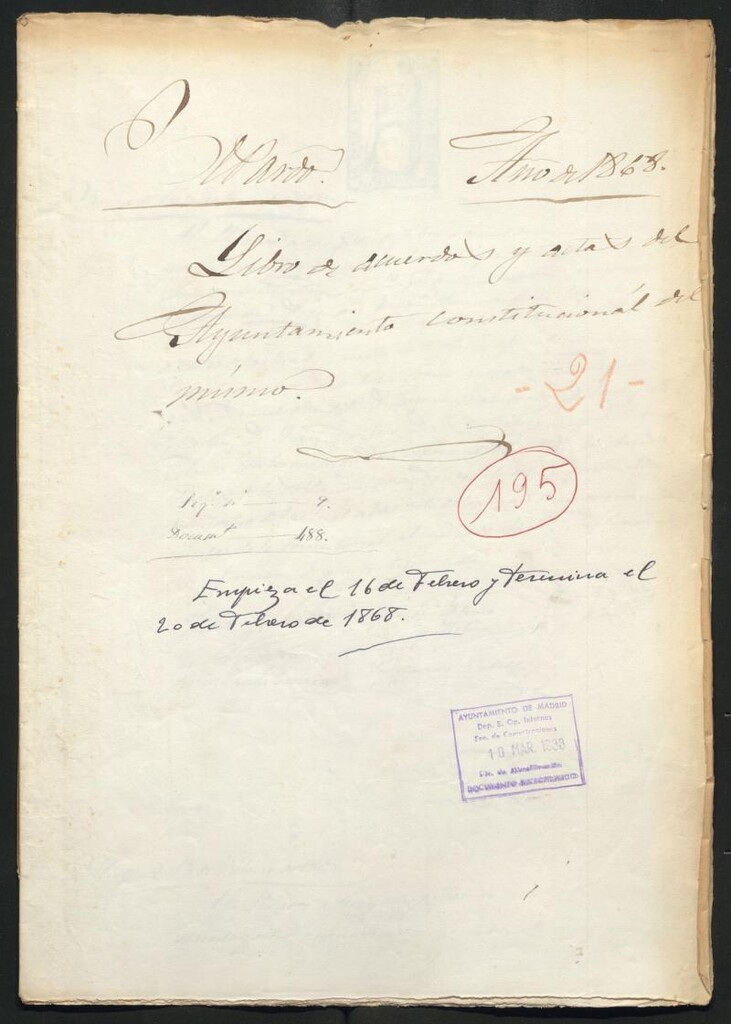 Año de 1868.
Libro de acuerdos y actas del
Ayuntamiento constitucionál del
mismo.
- 21 -
195
9.
Docum.tˢ 488.
Empieza el 16 de Febrero y termina el
20 de Febrero de 1868.
AYUNTAMIENTO DE MADRID
Dep. S. Op. Internos
10 MAR. 1983
DOCUMENTO MICROFILMADO